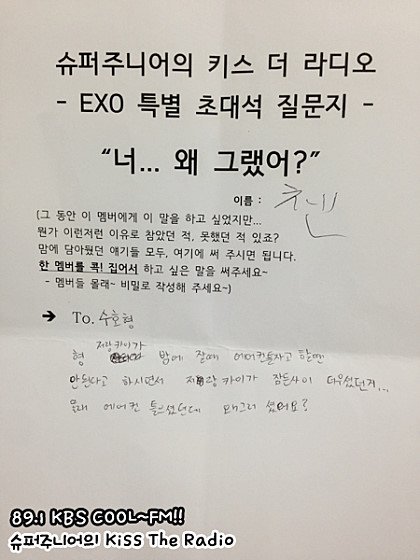 슈퍼주니어의 키스 더 라디오
- EXO 특별 초대석 질문지 -
“너... 왜 그랬어?”
이름 : 첸
(그 동안 이 멤버에게 이 말을 하고 싶었지만...
뭔가 이런저런 이유로 참았던 적, 못했던 적 있죠?
맘에 담아뒀던 얘기들 모두, 여기에 써 주시면 됩니다.
한 멤버를 콕! 집어서 하고 싶은 말을 써주세요~
- 멤버들 몰래~ 비밀로 작성해 주세요~)
➔ To. 수호형
저랑 카이가
형 밤에 잘때 에어컨틀자고 할땐
안된다고 하시면서 저랑 카이가 잠든사이 더우셨던지...
몰래 에어컨 틀으셨던데 왜그러셨어요?
89.1 KBS COOL~FM!!
슈퍼주니어의 Kiss The Radio